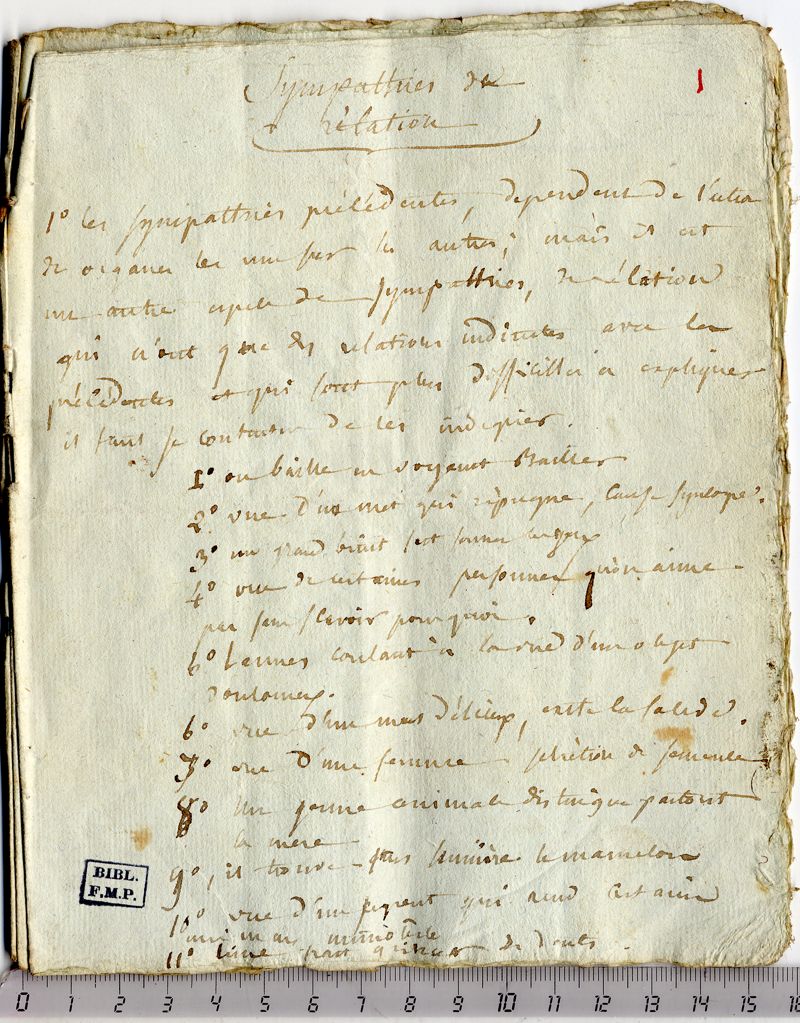 Sympathies de
rélation
1
1° les sympathies précédentes, dependent de l'action
de organes les uns sur les autres; mais il est
un autre espece de sympathies, de rélation
qui n'ont que des relations indirectes avec les
précédentes et qui sont plus difficilles a expliquer
il faut se contenter de les indiquer.
1° on baille en voyant Bailler
2° vue d'un met qui répugne, cause syncope.
3° un grand bruit fait
4° vue de certaines personnes qu'on aime
pas sans scavoir pourquoi.
5° larmes coulant à la vue d'un objet
douloureux.
6° vue d'un mets délicieux, excite la salive.
7° vue d'une femme sécrétion de semence
8° un jeune animale distingue partout
la mere
9°, il trouve sans lumière le mamelon
10° vue d'un serpent qui rend certain
animaux immobile
11° lime fait grincer de dents.
BIBL.
F.M.P.
0 1 2 3 4 5 6 7 8 9 10 11 12 13 14 15 16